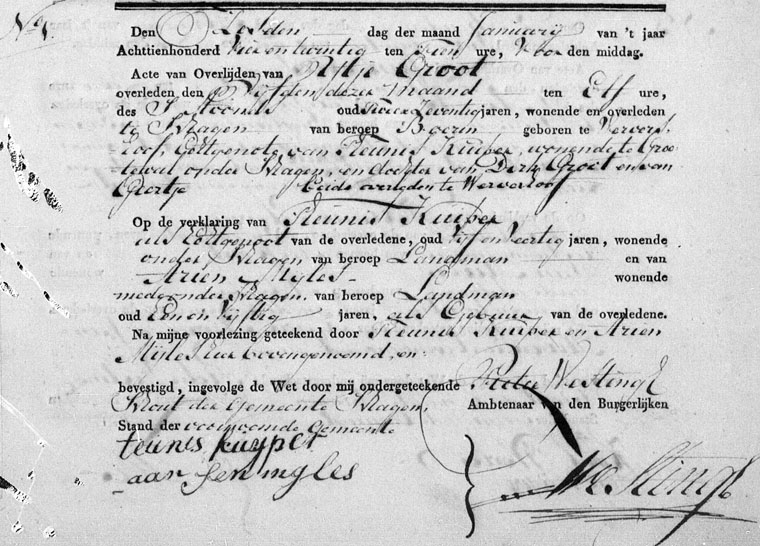 No.
Den Zesden dag der maand Januarij van 't jaar
Achttienhonderd Vier en twintig ten Tien ure, Voor den middag.
Acte van Overlijden van Groot
overleden den Vyfden dezer maand ten Elf ure,
des oud jaren, wonende en overleden
te Schagen van beroep Boerin geboren te Wervers
hoof, Echtgenote van Teunis Kuiper, wonende te Groe
tewal onder Schagen, en dochter van Dirk Groot en van
Geertje Beide overleden te Wervershoof
Op de verklaring van Teunis Kuiper
als Echtgenoot van de overledene, oud Vyf en Veertig jaren, wonende
onder Schagen van beroep Landman en van
Arien Myles wonende
mede onder Schagen, van beroep Landman
oud Een en Vyftig jaren, als Gebuur van de overledene.
Na mijne voorlezing geteekend door Teunis Kuiper en Arien
Myles bovengenoemd, en
bevestigd, ingevolge de Wet door mij ondergeteekende Pieter Westingh
Schout der Gemeente Schagen, Ambtenaar van den Burgerlijken
Stand der voornoemde Gemeente
teunis kuyper
aar Jen myles
Westingh